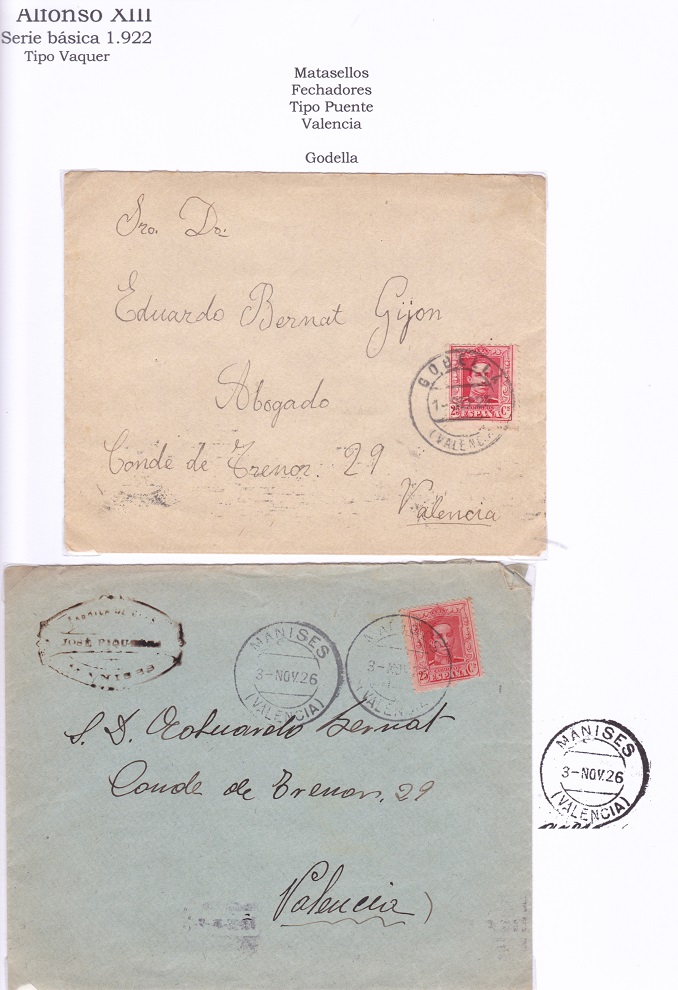 Alfonso XIII
Serie básica 1.922
Tipo Vaquer
Matasellos
Fechadores
Tipo Puente
Valencia
Godella
Sro. Dn.
Eduardo Bernat Gijon
Abogado
Conde de Trenor. 29
Valencia
GODELL
(VALENCIA
25 Cs
ESPAÑA
FABRICA DE
JOSÉ PIQUE
MANISES
MANISES
3-NOV.26
(VALENCIA)
3-NOV
VALENCIA
25 Cs
ESPAÑA
S. D. Eduardo Bernat
Conde de Trenor, 29
Valencia
MANISES
3-NOV.26
(VALENCIA)